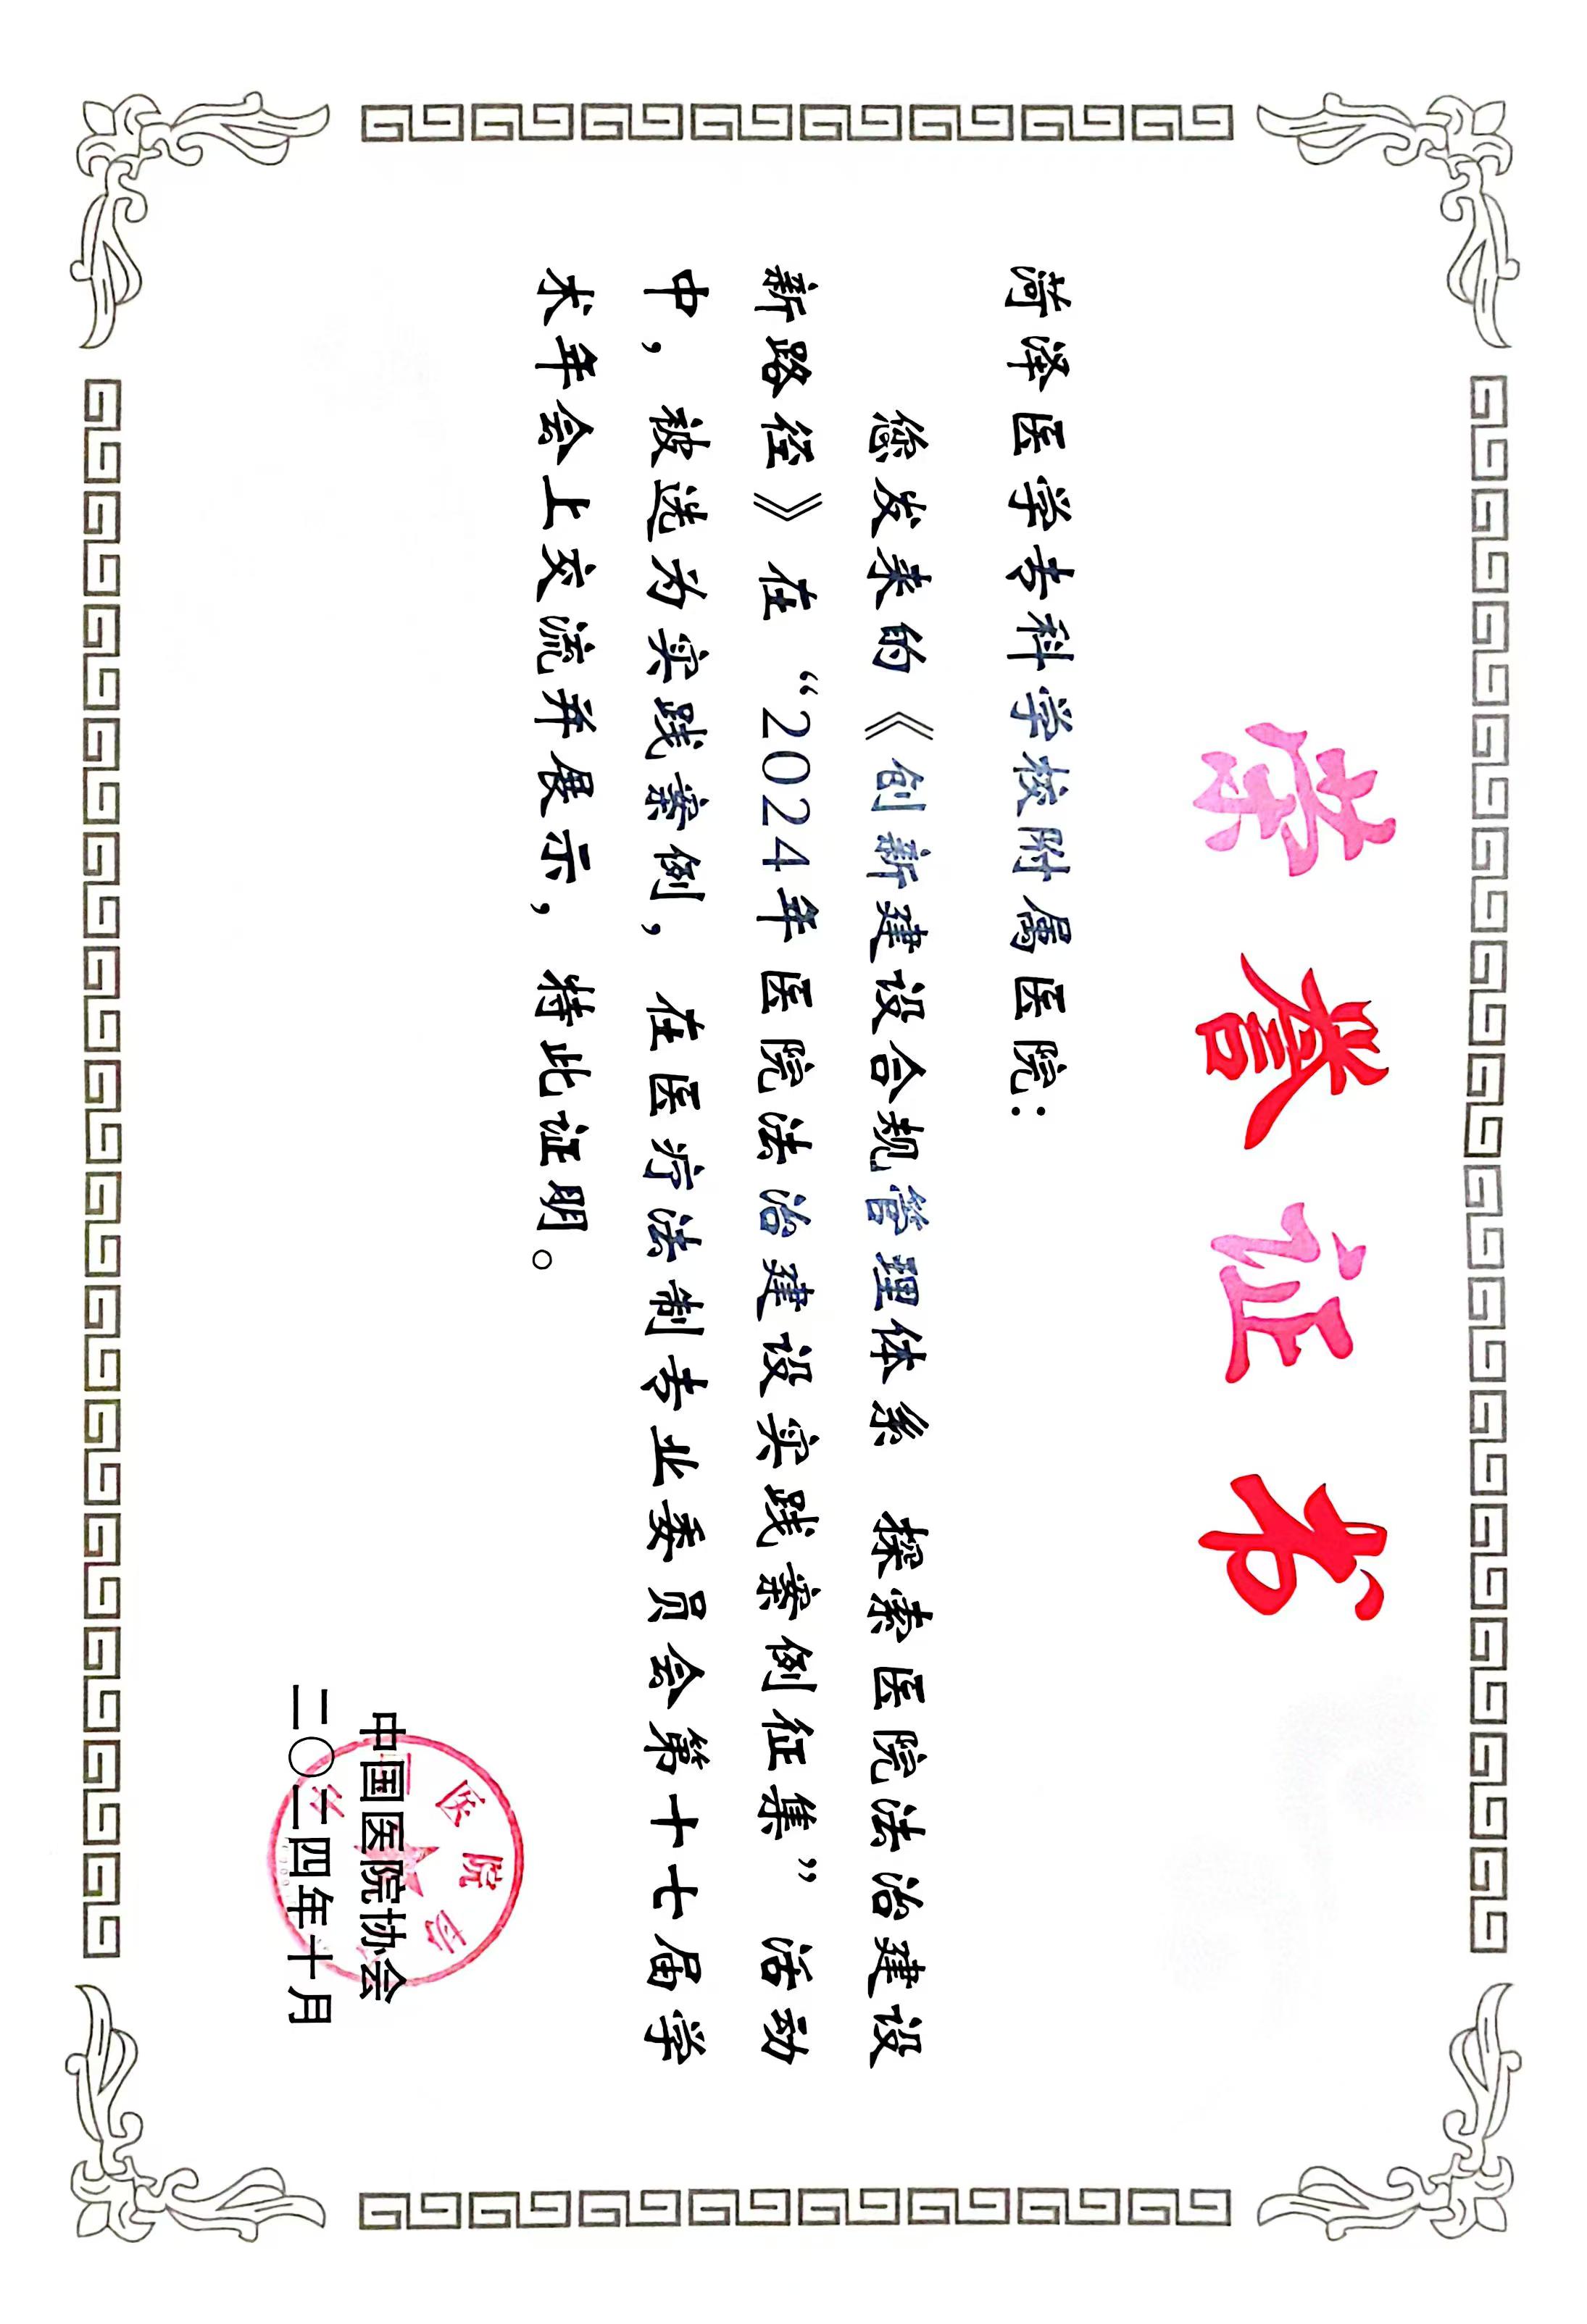 荣誉证书
菏泽医学专科学校附属医院：
您发来的《创新建设合规管理体系 探索医院法治建设
新路径》在“2024年医院法治建设实践案例征集”活动
中，被选为实践案例，在医疗法制专业委员会第十七届学
术年会上交流并展示，特此证明。
中国医院协会
二〇二四年十月